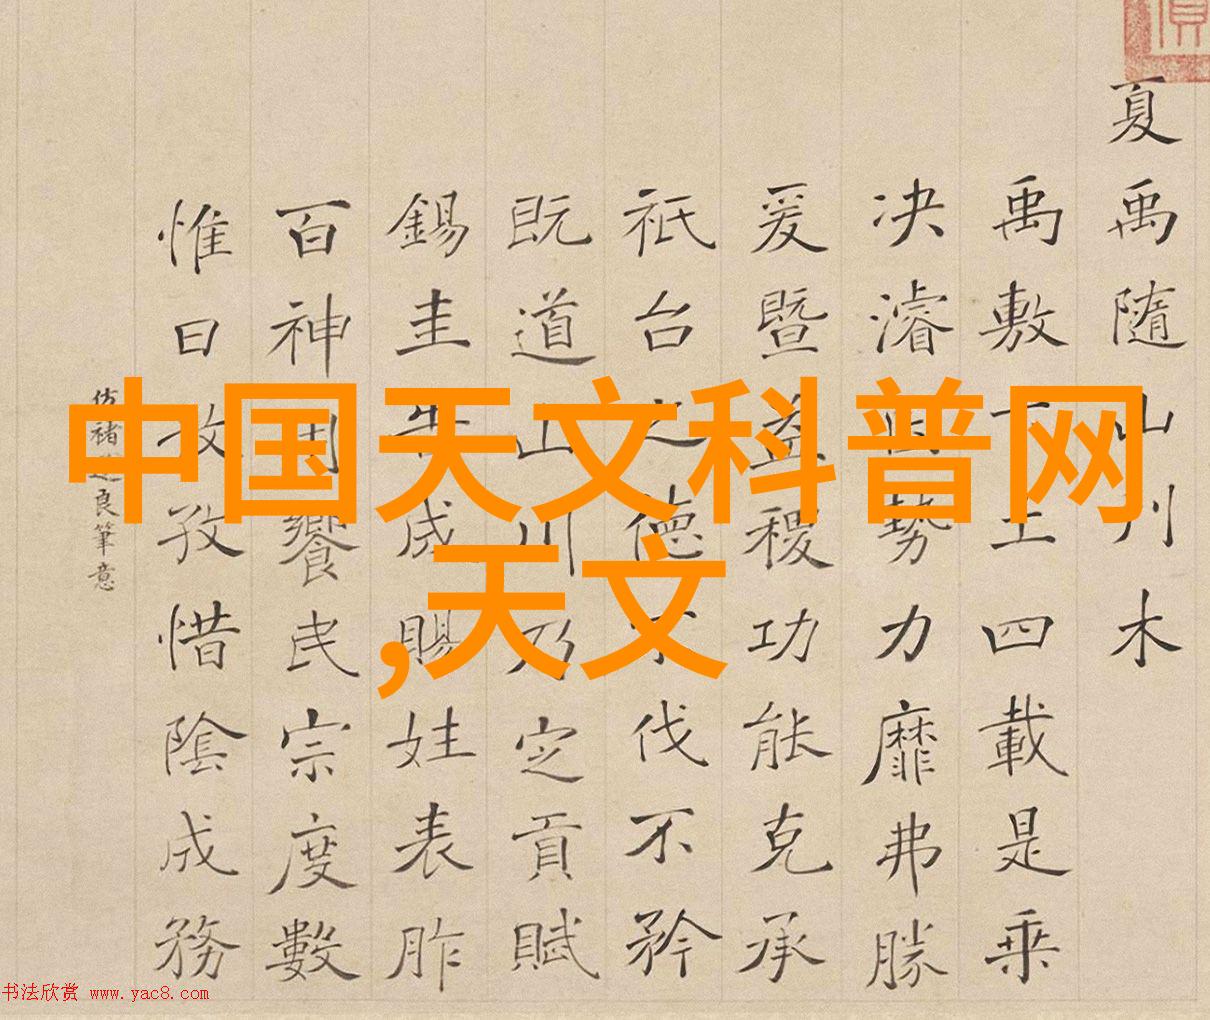 中国天文科普网
,天文
夏禹隨山刊木
禹敷下土四載是乘
决濬勢力靡弗勝
爰暨益稷功能克承
祇台之德不伐不矜
既道山川乃定貢賦
錫圭告成賜姓表胙
百神周饗民宗度數
惟日孜孜惜陰成務
仿褚遂良筆意
书法欣赏 www.yac8.com